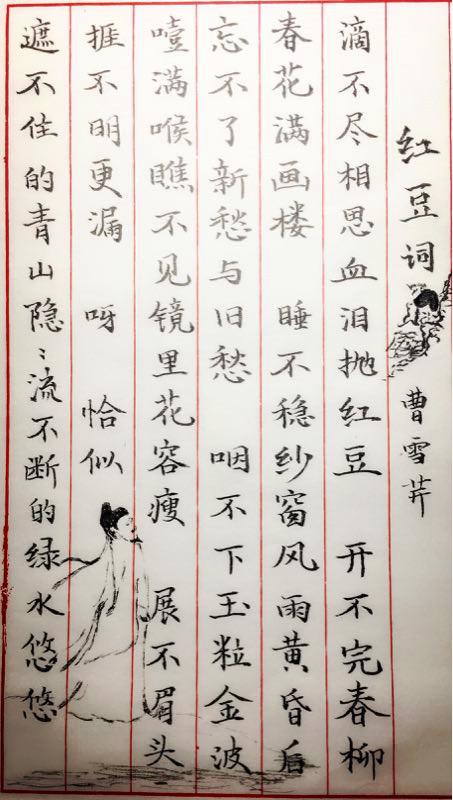 红豆词 曹雪芹
滴不尽相思血泪抛红豆 开不完春柳
春花满画楼 睡不稳纱窗风雨黄昏后
忘不了新愁与旧愁 咽不下玉粒金波
噎满喉瞧不见镜里花容瘦 展不眉头
捱不明更漏 呀 恰似
遮不住的青山隐〻流不断的绿水悠悠